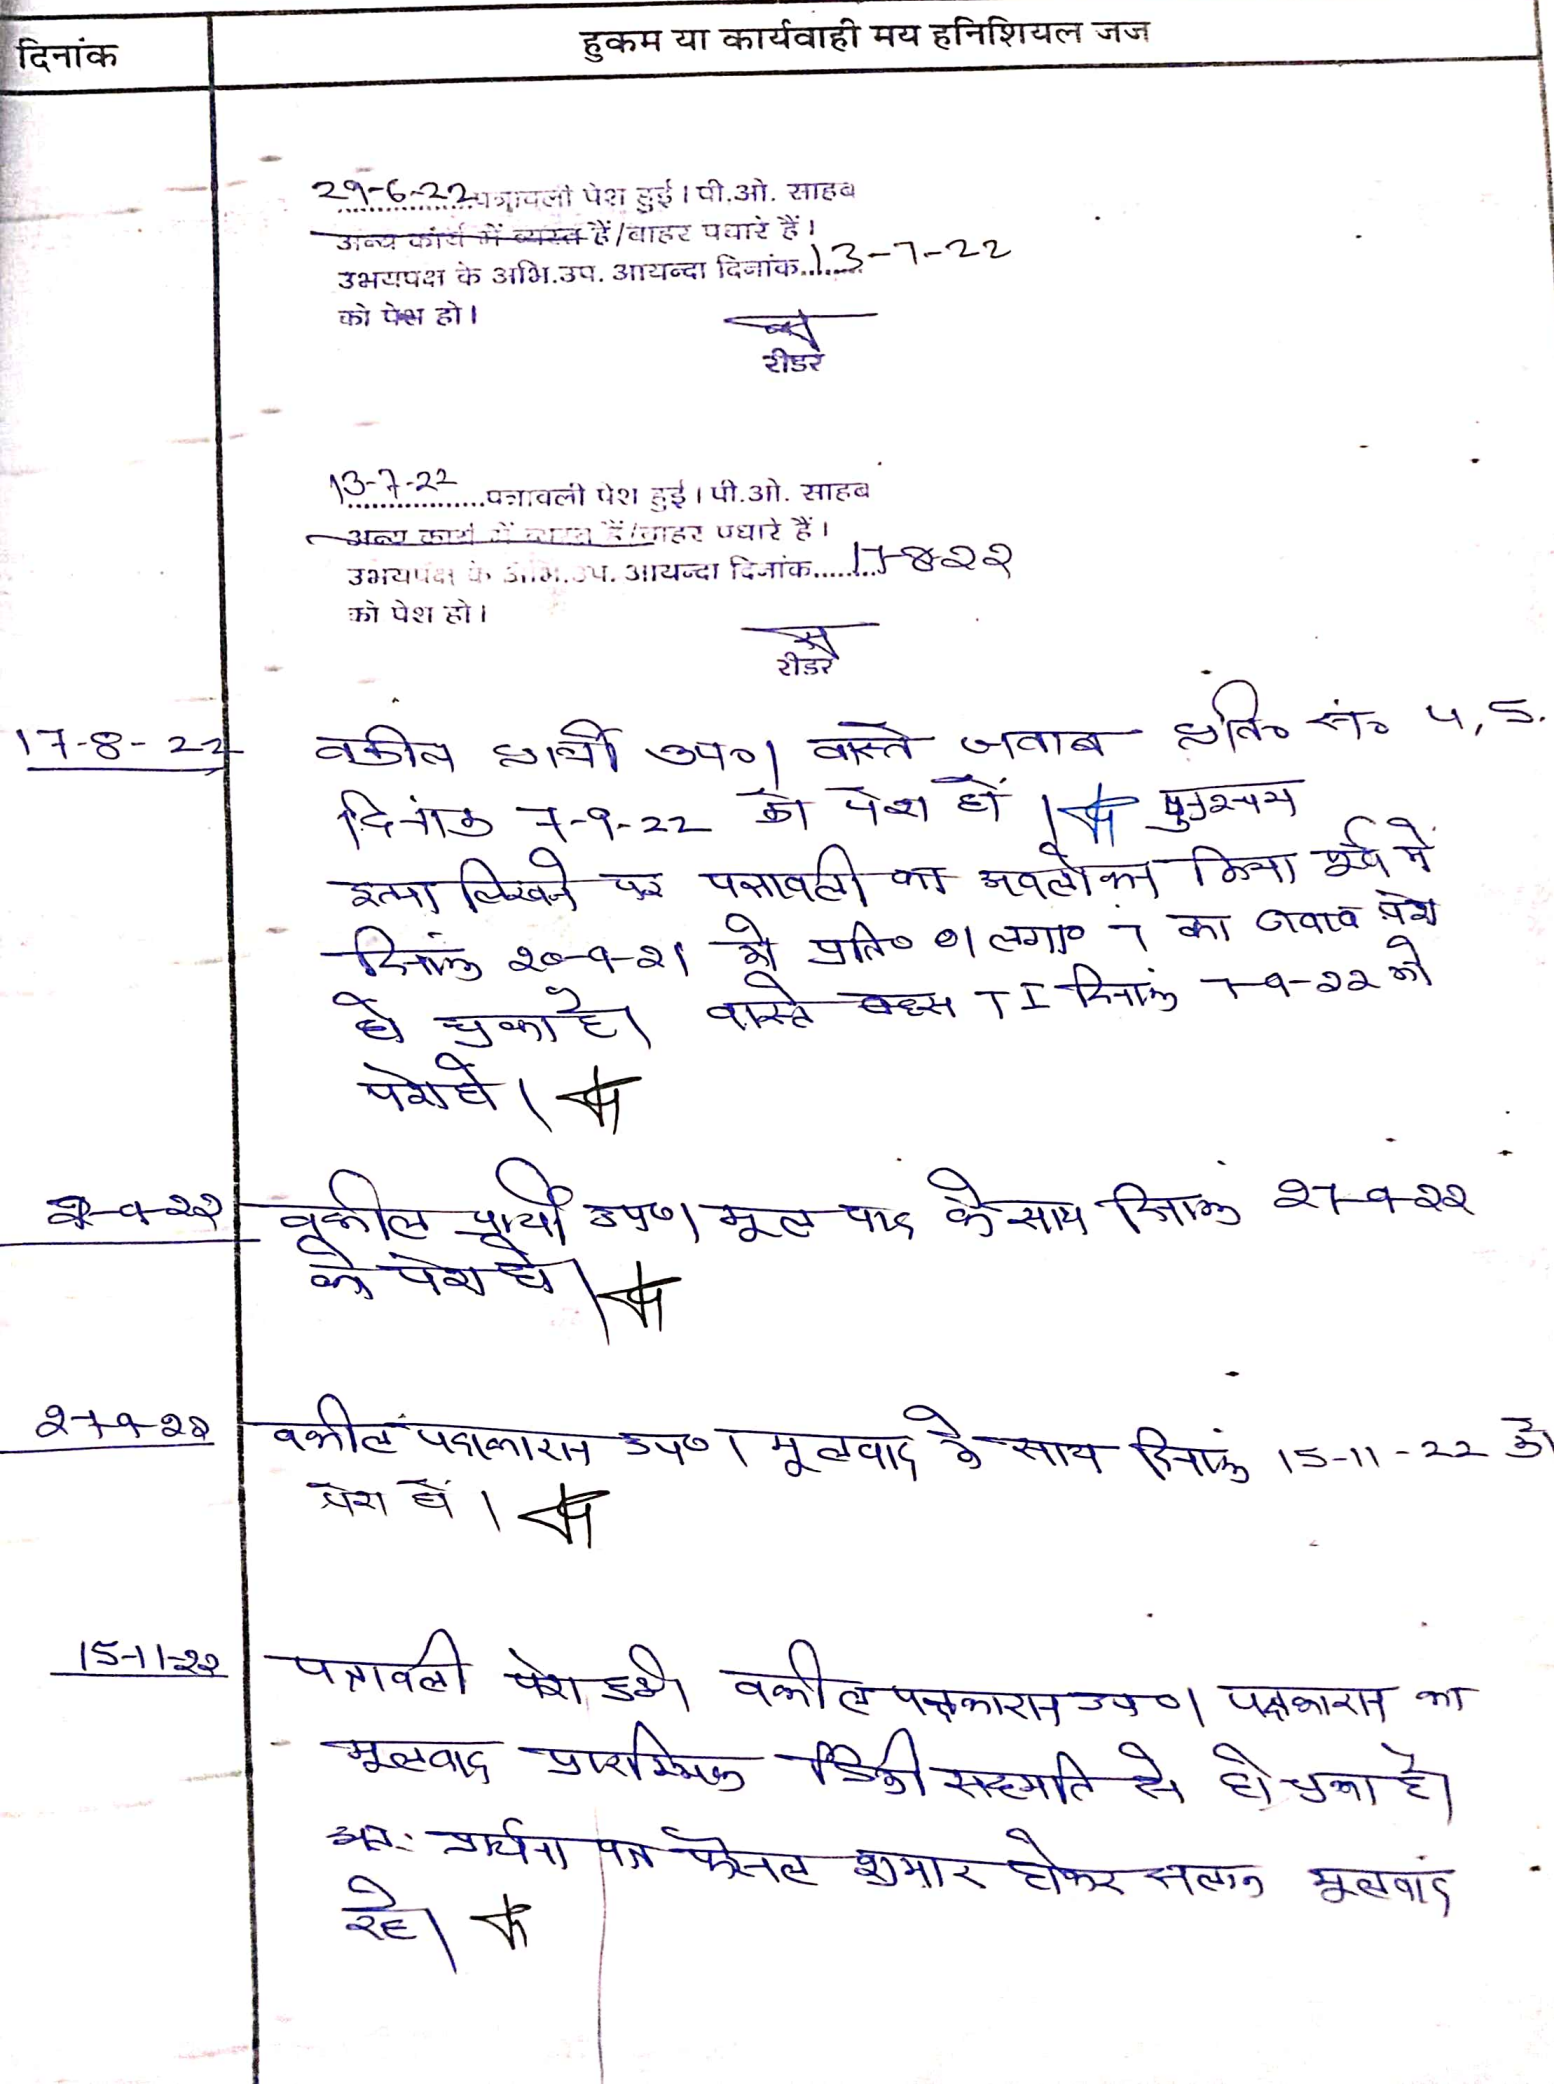 दिनांक
हुकम या कार्यवाही मय इनिशियल जज
29-6-22 पत्रावली पेश हुई। पी.ओ. साहब
अन्य कार्य में व्यस्त हैं/बाहर पधारे हैं।
उभयपक्ष के अभि.उप. आयन्दा दिनांक......13-7-22
को पेश हो।
रीडर
13-7-22 पत्रावली पेश हुई। पी.ओ. साहब
अन्य कार्य में व्यस्त हैं/बाहर पधारे हैं।
उभयपक्ष के अभि.उप. आयन्दा दिनांक......17-8-22
को पेश हो।
रीडर
17-8-22 वकील प्रार्थी उप०। वास्ते जवाब प्रति० सं० 4, 5.
दिनांक 7-9-22 को पेश हों। पुनश्चय
इतना लिखने पर पत्रावली का अवलोकन किया पूर्व में
दिनांक 20-9-21 को प्रति० 01 लगा० 7 का जवाब पेश
हो चुका है। वास्ते बहस T I दिनांक 7-9-22 को
पेश हो।
7-9-22 वकील प्रार्थी उप०। मूल वाद के साथ दिनांक 27-9-22
को पेश हो।
27-9-22 वकील पक्षकारान उप०। मूलवाद के साथ दिनांक 15-11-22 को
पेश हों।
15-11-22 पत्रावली पेश हुई। वकील पक्षकारान उप०। पक्षकारान का
मूलवाद प्रारम्भिक डिक्री सहमति से हो चुका है।
अतः प्रार्थना पत्र फैसल शुमार होकर सलग्न मूलवाद
रहे।